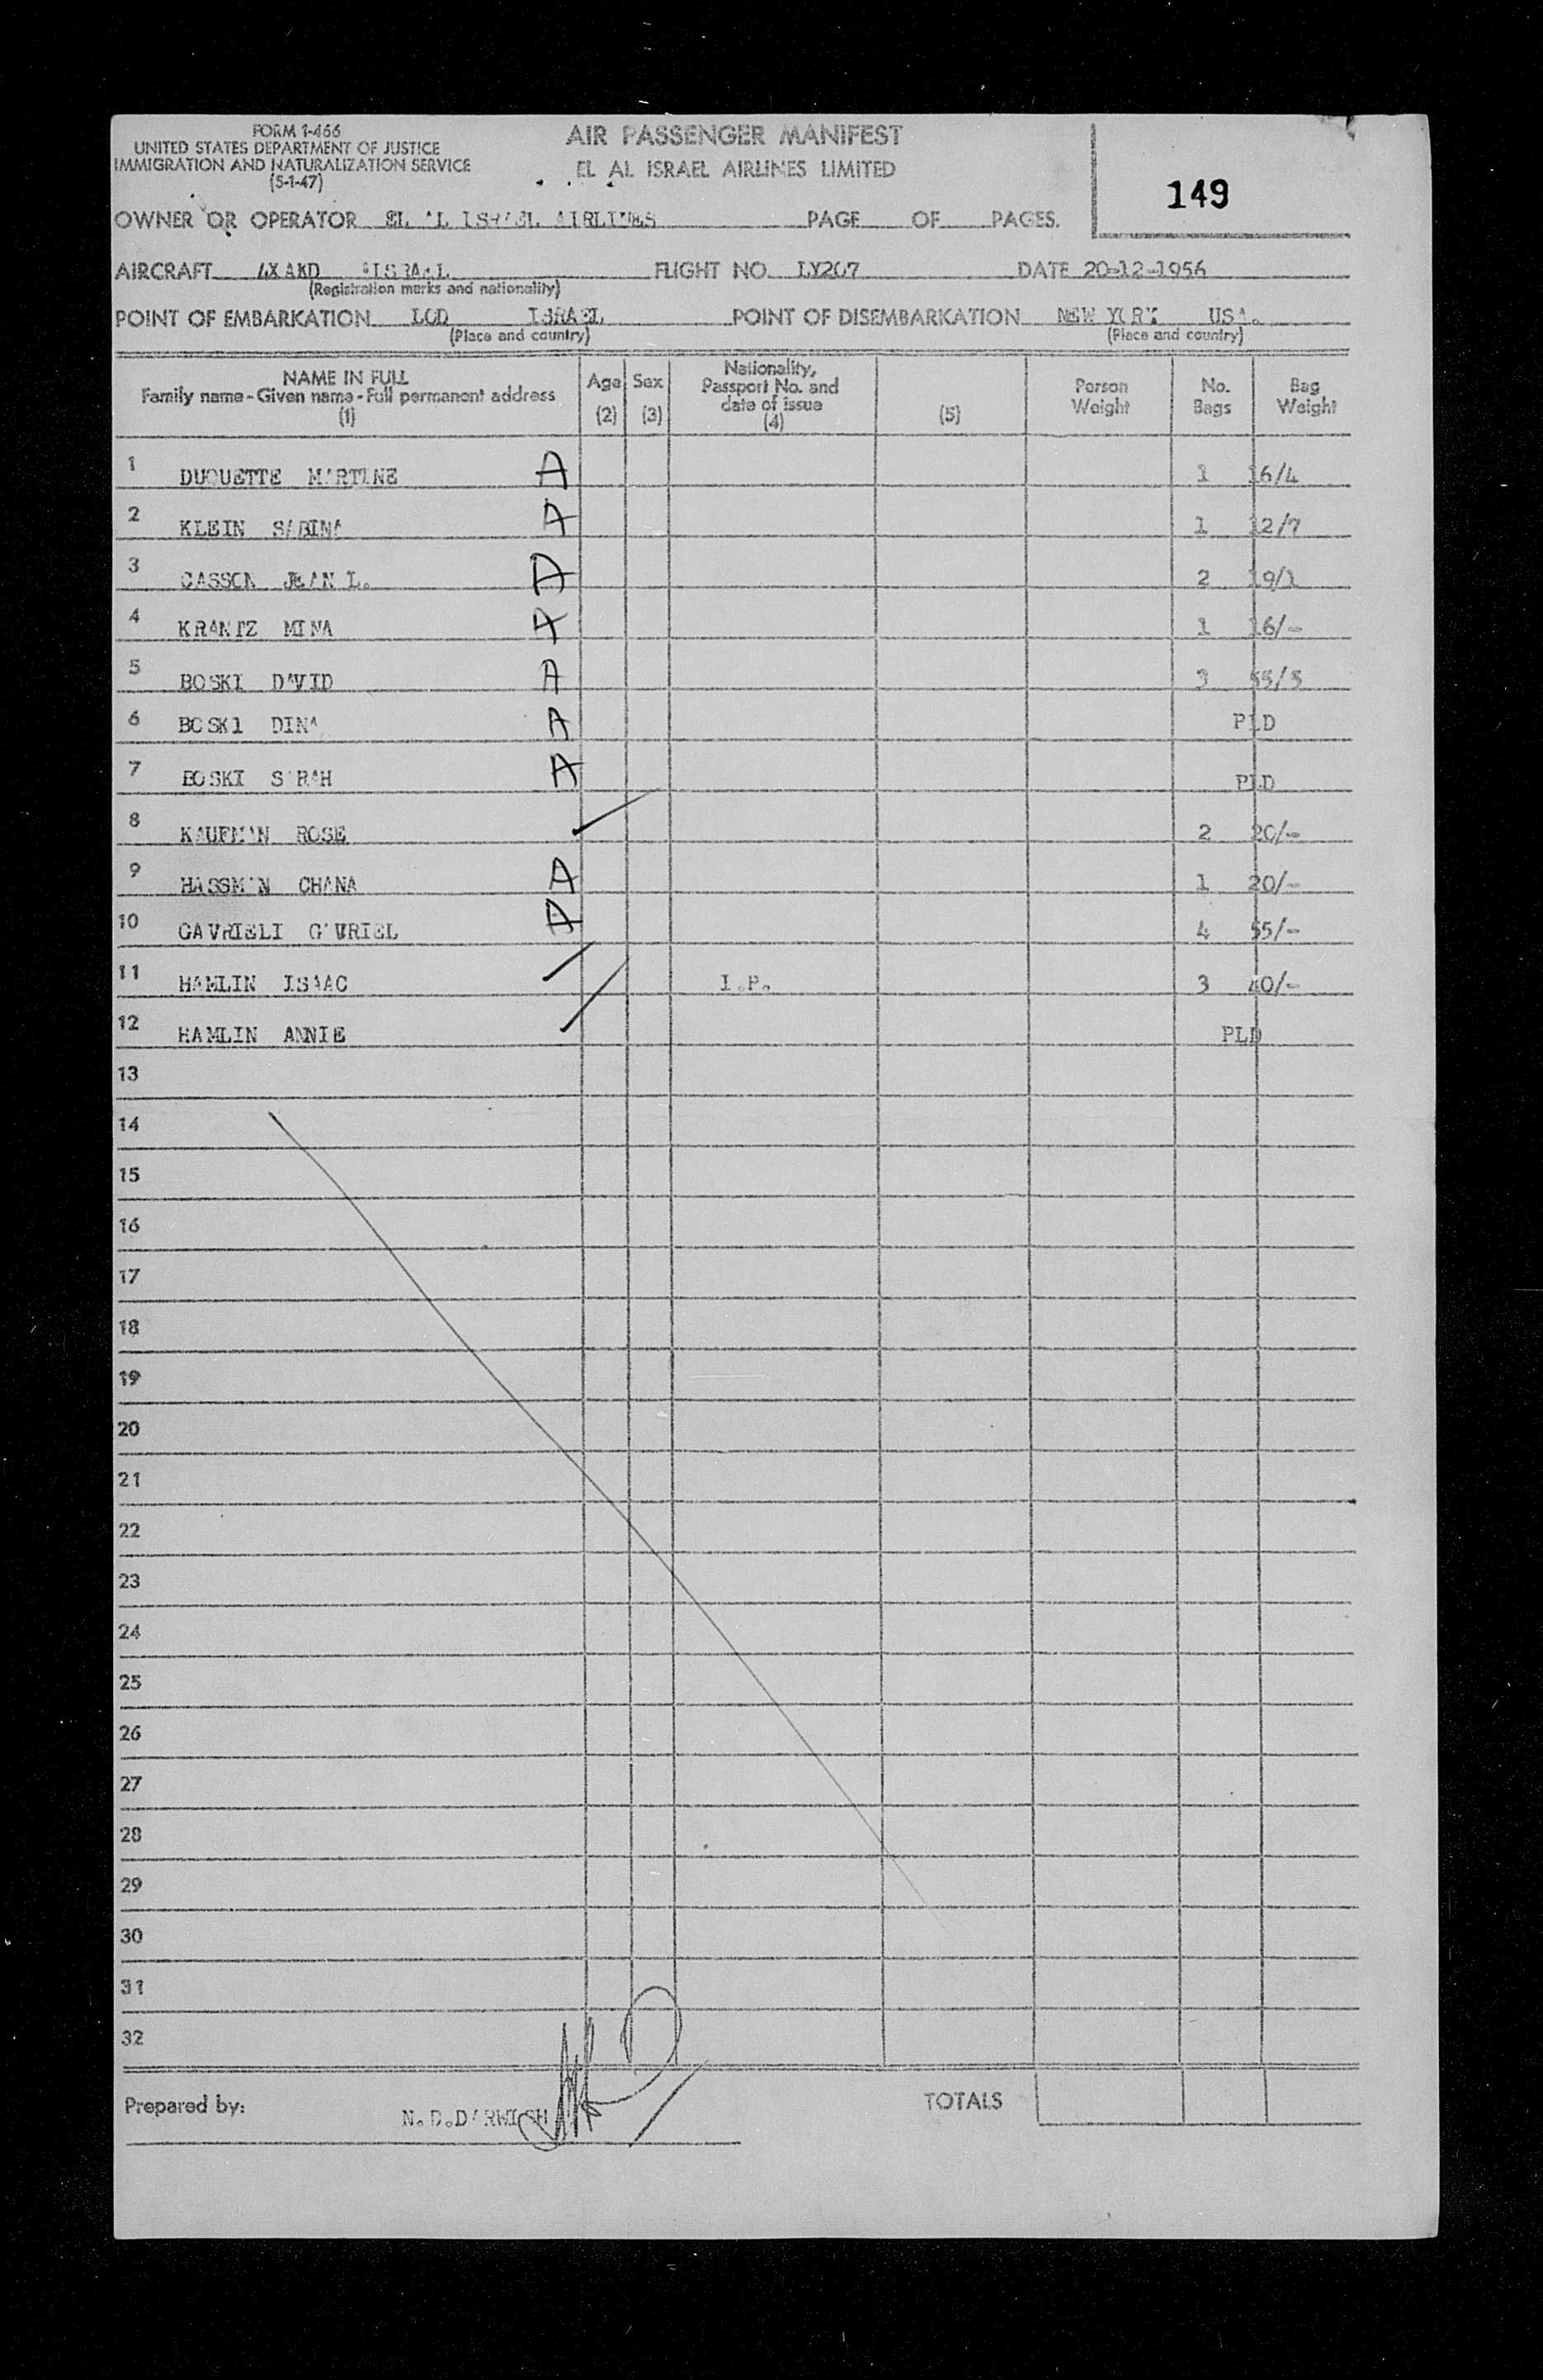 FORM 1-466
UNITED STATES DEPARTMENT OF JUSTICE
IMMIGRATION AND NATURALIZATION SERVICE
(5-1-47)
AIR PASSENGER MANIFEST
EL AL ISRAEL AIRLINES LIMITED
149
OWNER OR OPERATOR EL AL ISRAEL AIRLINES PAGE OF PAGES.
AIRCRAFT 4XAKD ISRAEL FLIGHT NO. LY207 DATE 20-12-1956
(Registration marks and nationality)
POINT OF EMBARKATION LOD ISRAEL POINT OF DISEMBARKATION NEW YORK USA.
(Place and country) (Place and country)
NAME IN FULL
Family name - Given name - Full permanent address
(1)
Age
(2)
Sex
(3)
Nationality,
Passport No. and
date of issue
(4)
(5)
Person
Weight
No.
Bags
Bag
Weight
1 DUQUETTE MARTINE A 1 16/4
2 KLEIN SABINA A 1 12/7
3 CASSON JEAN L. A 2 19/1
4 KRANTZ MINA A 1 16/-
5 BOSKI DAVID A 3 55/5
6 BOSKI DINA A PLD
7 BOSKI SARAH A PLD
8 KAUFMAN ROSE 2 20/-
9 HASSMAN CHANA A 1 20/-
10 GAVRIELI GAVRIEL A 4 55/-
11 HAMLIN ISAAC I.P. 3 40/-
12 HAMLIN ANNIE PLD
13
14
15
16
17
18
19
20
21
22
23
24
25
26
27
28
29
30
31
32
Prepared by: N.D.DARWISH TOTALS